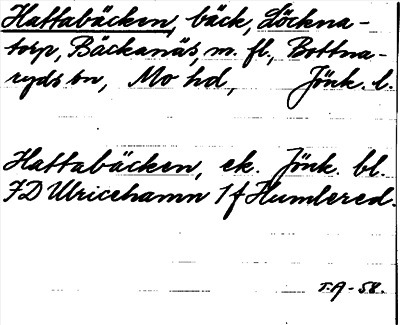 Hattabäcken, bäck, Löckna-
torp, Bäckanäs, m. fl., Bottna-
ryds sn, Mo hd, Jönk. l.
Hattabäcken, ek. Jönk. bl.
7D Ulricehamn 1f Humlered.
T.A-58.